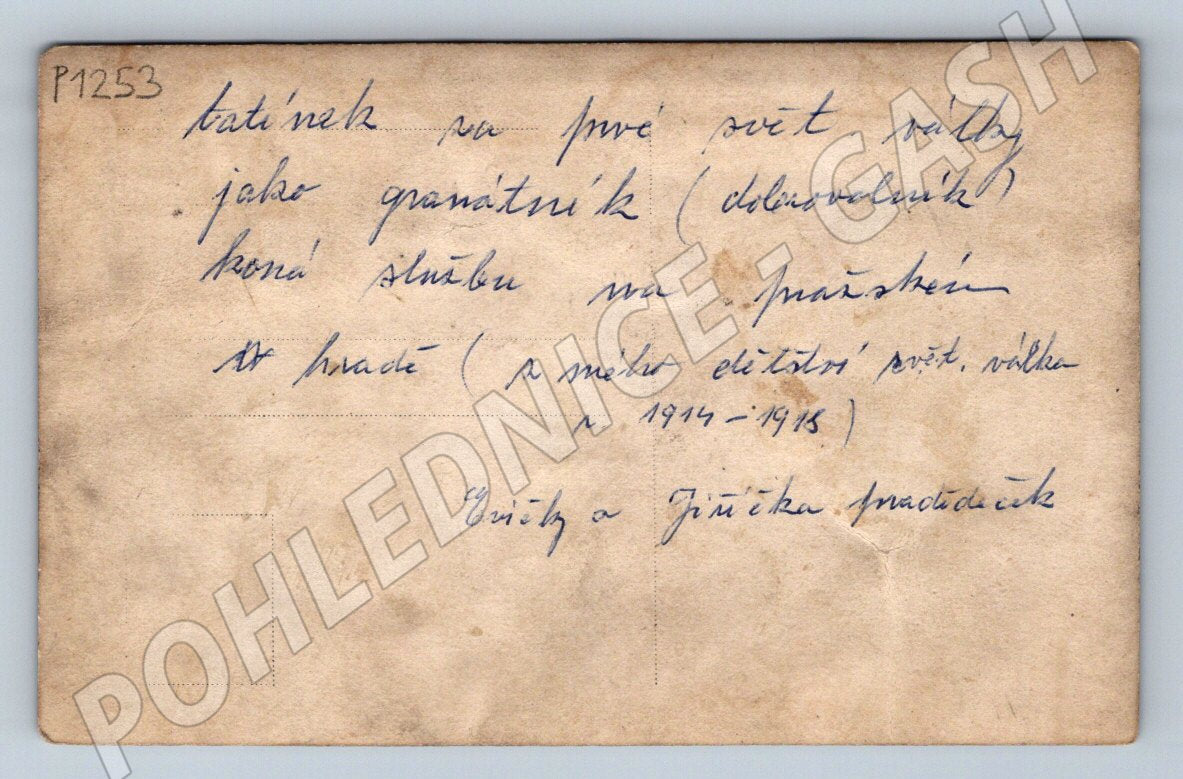 P1253
tatínek za prvé svět války
jako granátník (dobrovolník)
koná službu na pražském
hradě (z mého dětství svět. válka
r 1914-1918)
Evičky a Jiříčka pradědeček
POHLEDNICE - GASH